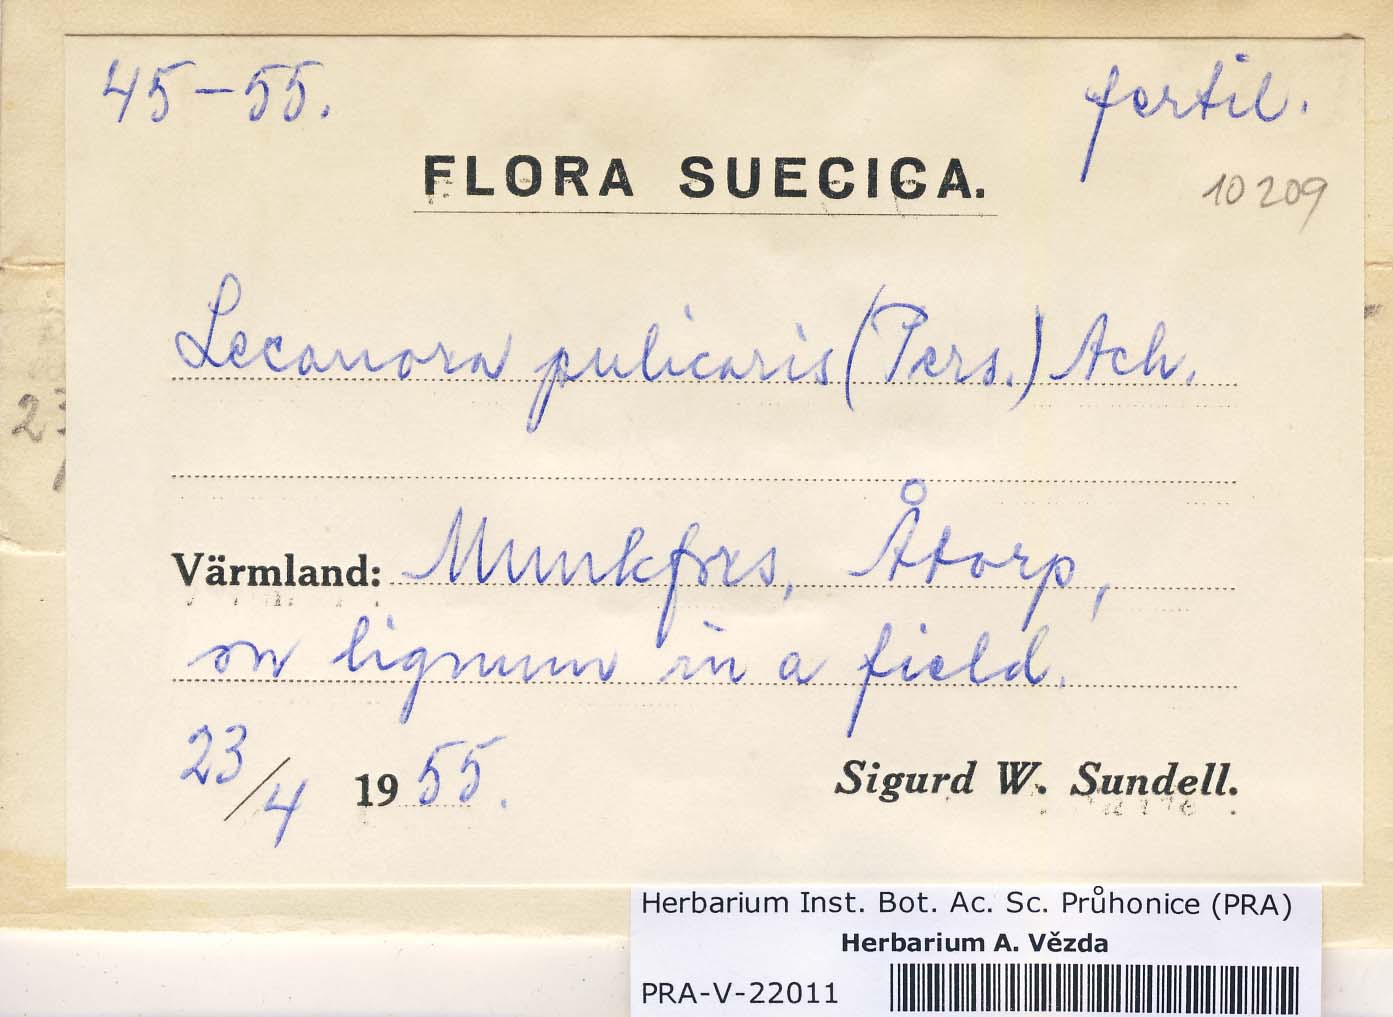 45-55. fertil.
FLORA SUECICA.
10209
Lecanora pulicaris (Pers.) Ach.
Värmland: Munkfors, Åtorp,
on lignum in a field.
23/4 1955. Sigurd W. Sundell.
Herbarium Inst. Bot. Ac. Sc. Průhonice (PRA)
Herbarium A. Vězda
PRA-V-22011